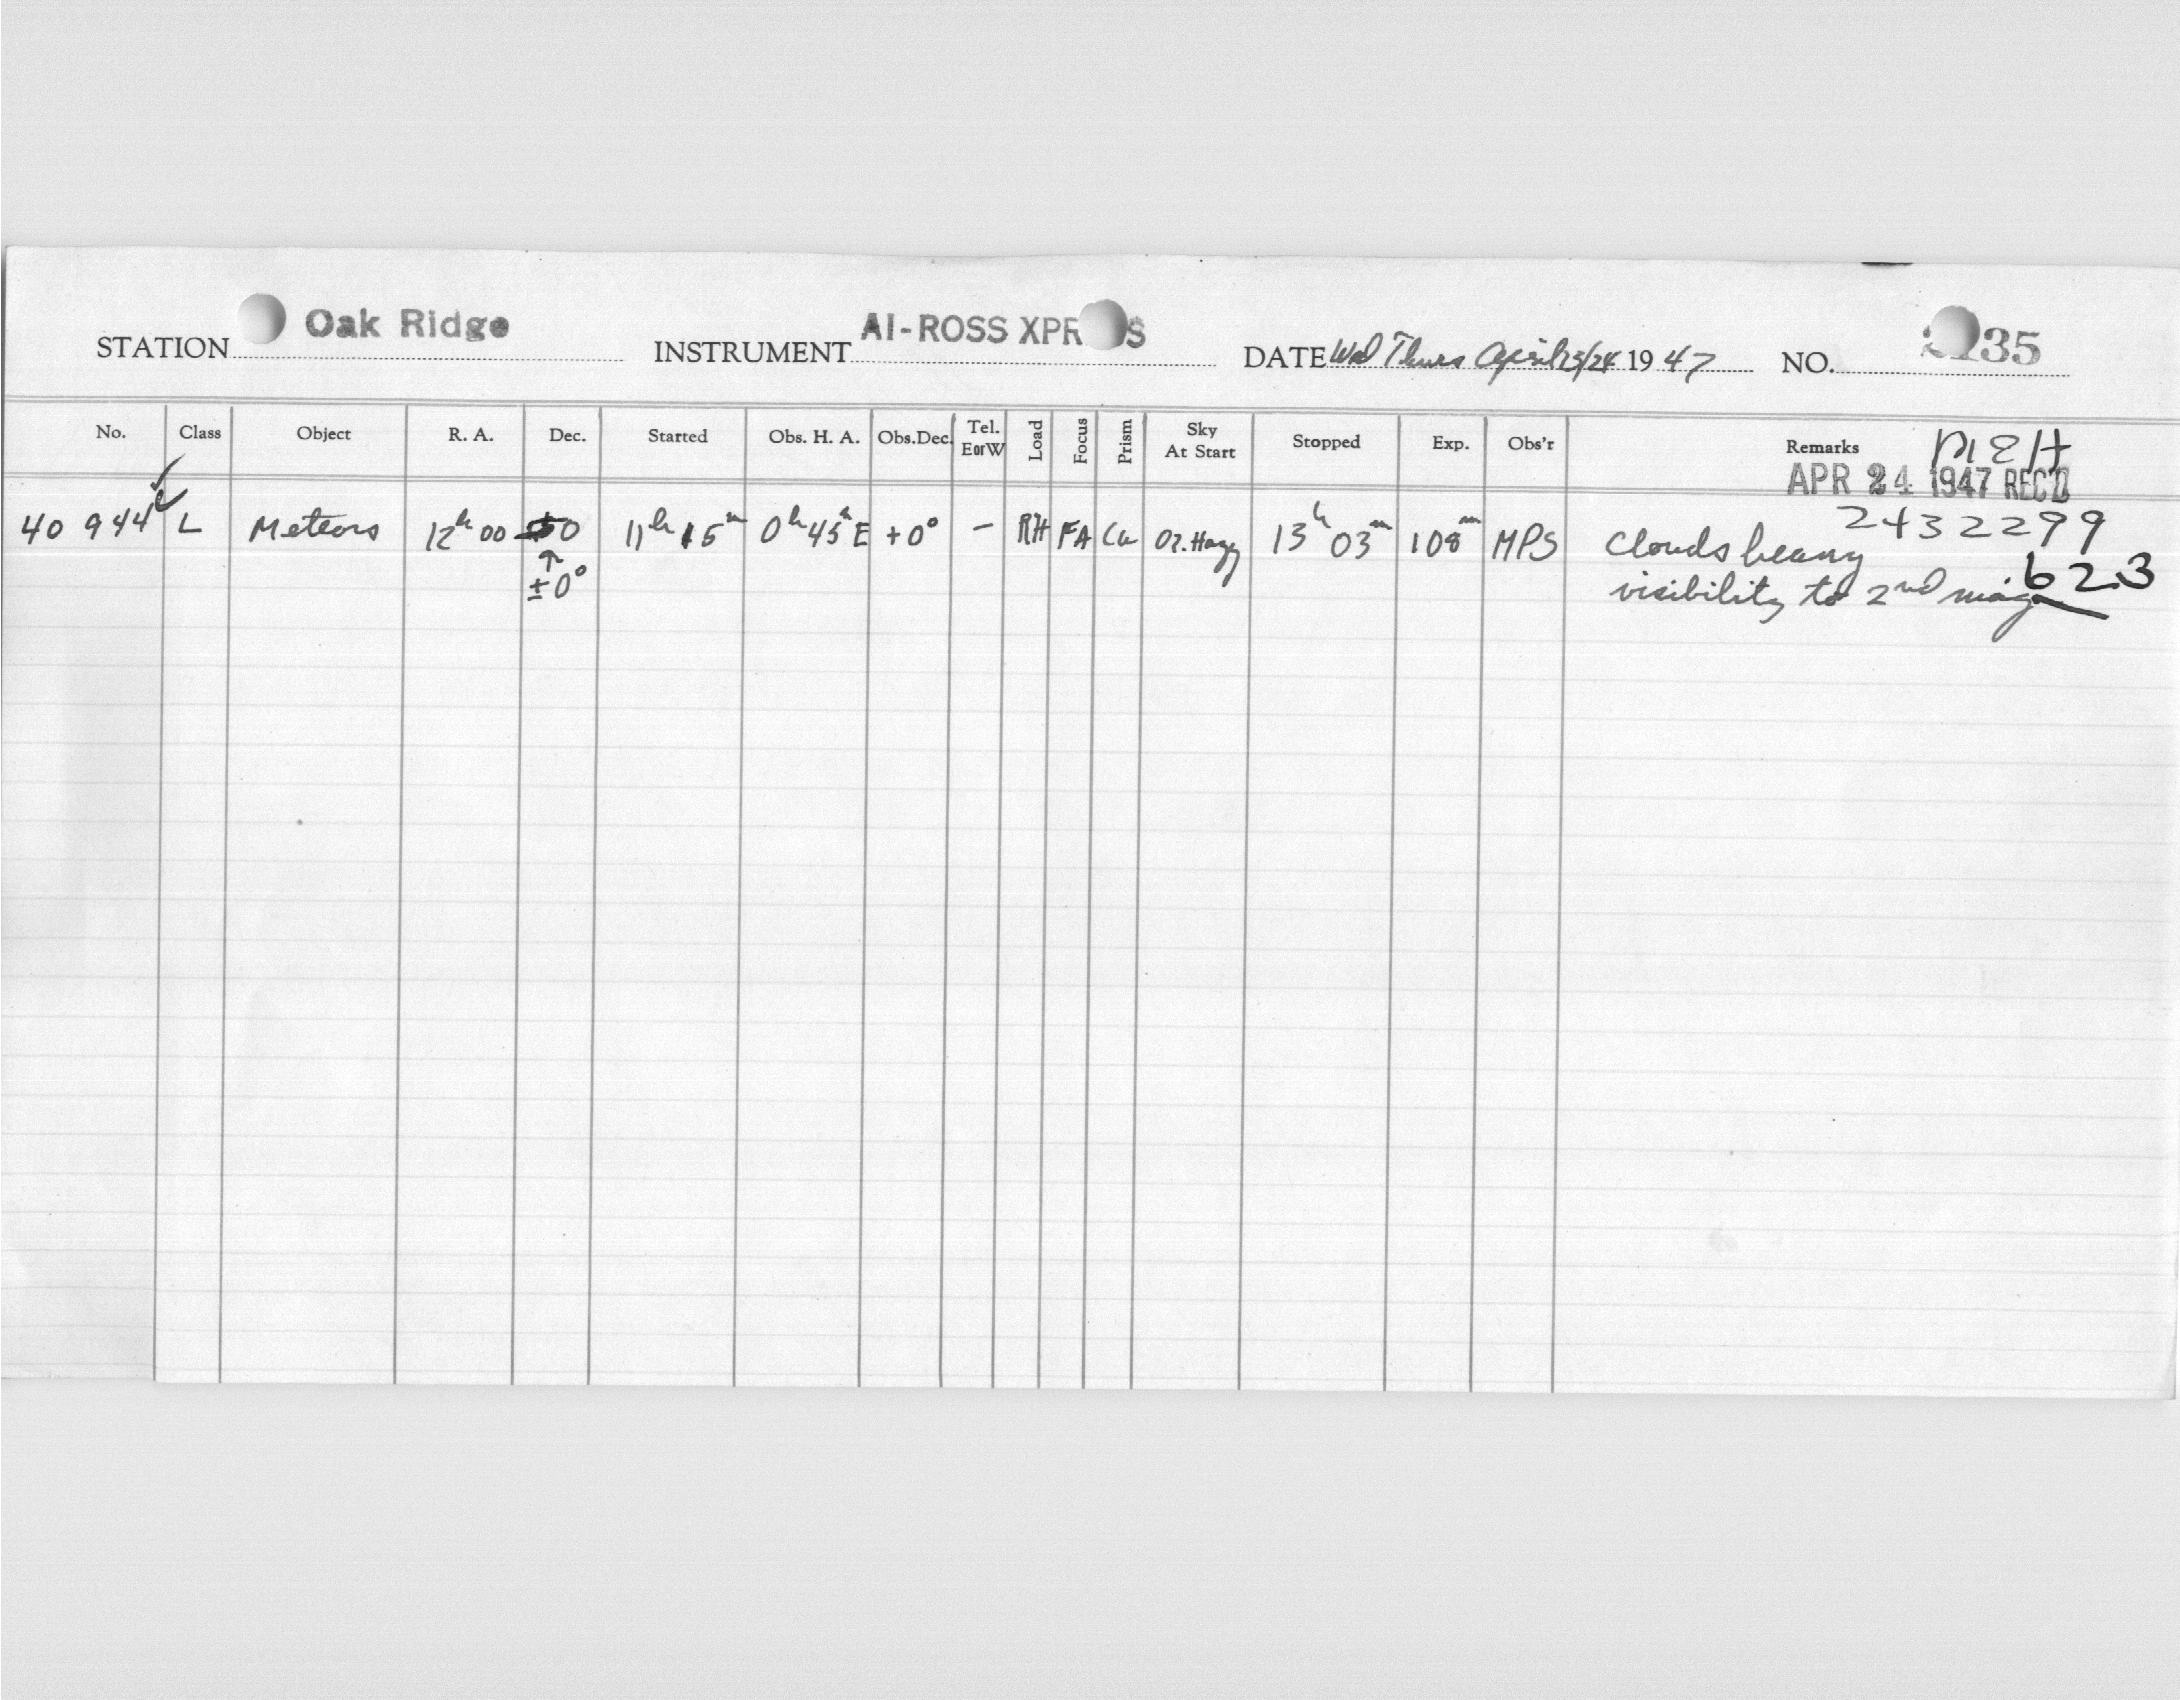 STATION Oak Ridge INSTRUMENT AI-ROSS XPR S DATE Wed Thurs April 23/24 1947 NO. 35
No. Class Object R. A. Dec. Started Obs. H. A. Obs.Dec. Tel. EorW Load Focus Prism Sky At Start Stopped Exp. Obs'r Remarks MEH
APR 24 1947 REC'D
2432299
40 944 L Meteors 12h 00 0 11h 15m 0h 45m E +0° - RH FA Cu Hazy 13h 03m 108m MPS Clouds heavy
±0° visibility to 2nd mag .623